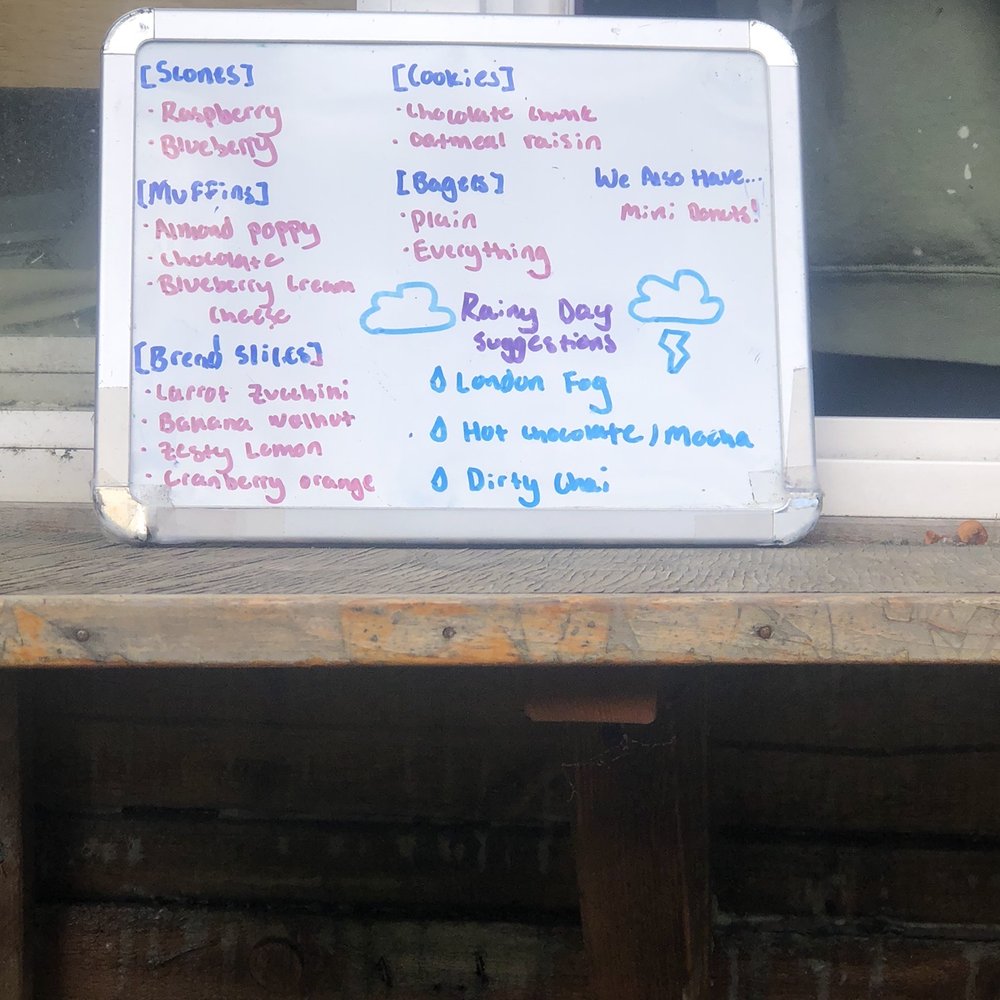 [Scones]
· Raspberry
· Blueberry
[Muffins]
· Almond poppy
· chocolate
· Blueberry cream
cheese
[Bread slices]
· Carrot zucchini
· Banana walnut
· Zesty Lemon
· Cranberry orange
[Cookies]
· Chocolate chunk
· oatmeal raisin
[Bagels]
· Plain
· Everything
We Also Have...
Mini Donuts!
Rainy Day
suggestions
London Fog
Hot chocolate / Mocha
Dirty Chai